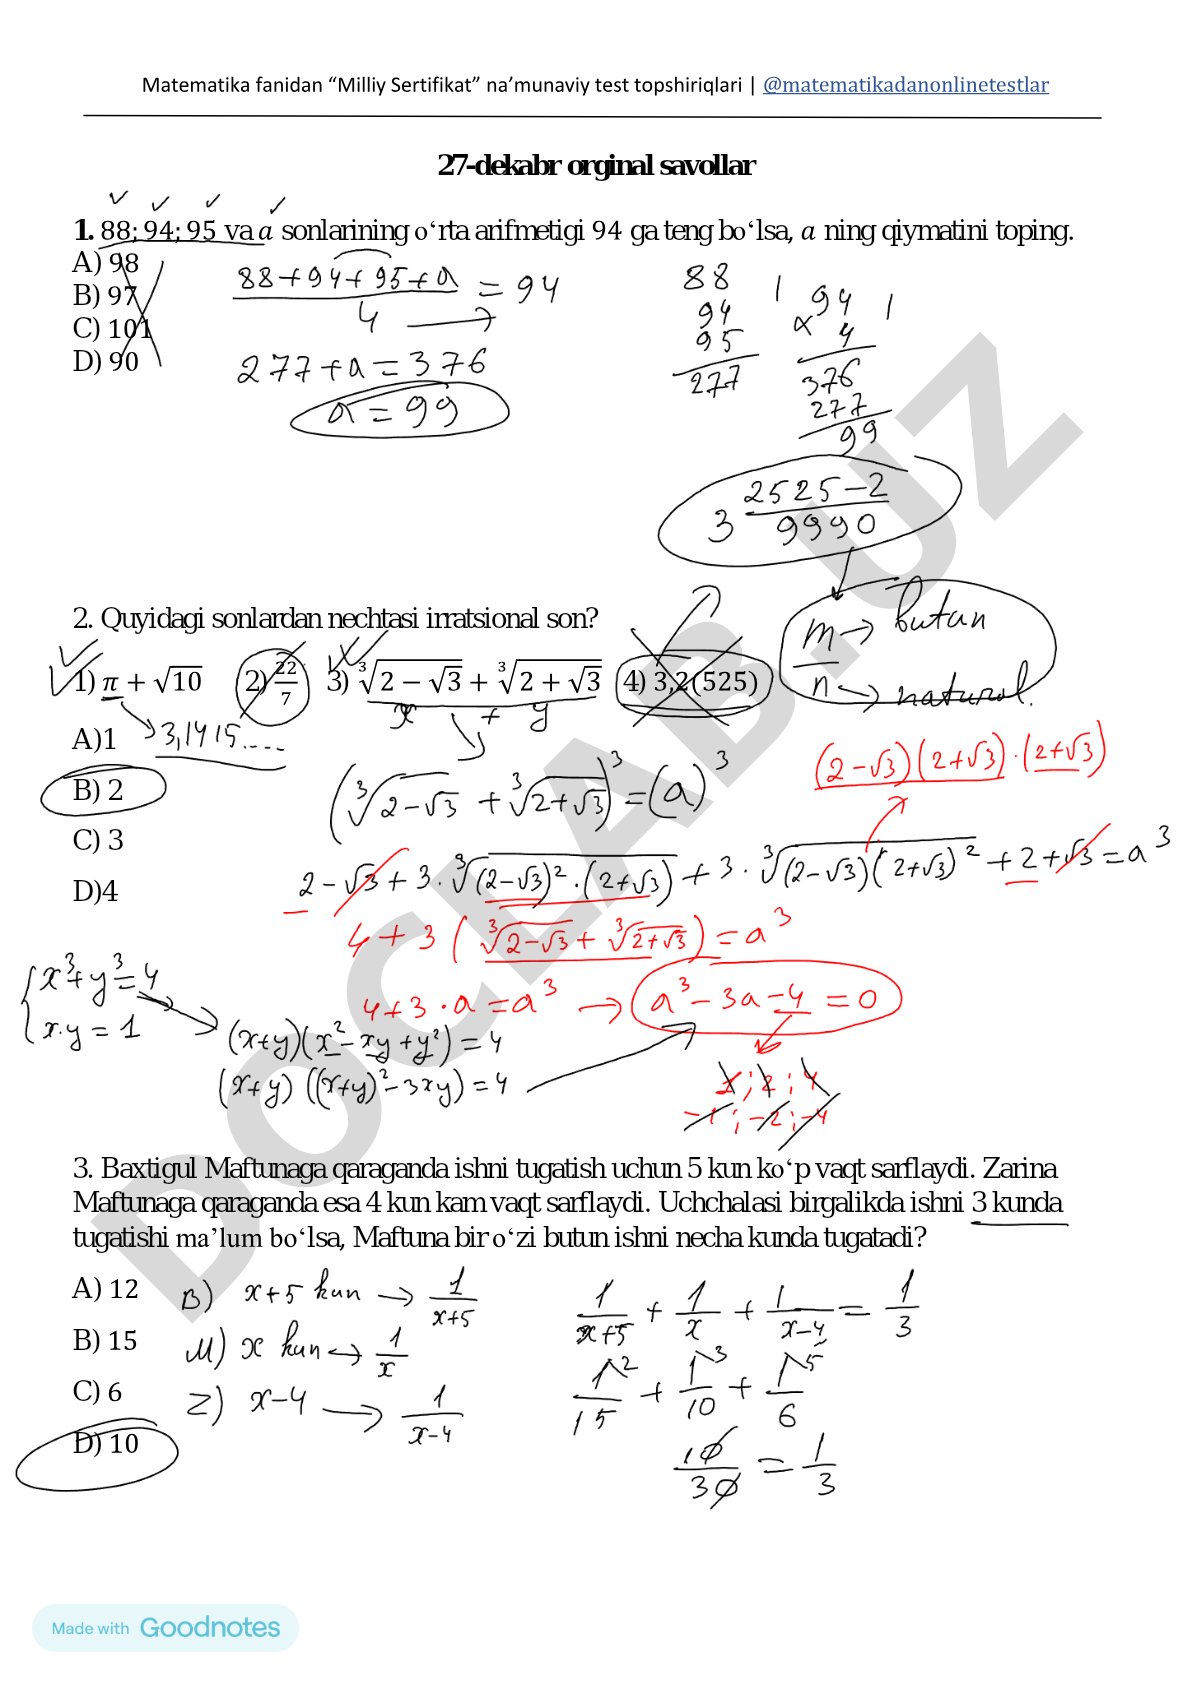 Matematika fanidan “Milliy Sertifikat” na’munaviy test topshiriqlari | @matematikadanonlinetestlar
27-dekabr orginal savollar
1. 88; 94; 95 va a sonlarining o‘rta arifmetigi 94 ga teng bo‘lsa, a ning qiymatini toping.
A) 98
B) 97
C) 101
D) 90
(88+94+95+a)/4 = 94
277+a=376
a=99
88
94
95
277
94
× 4
376
277
99
3 (2525−2)/9990
m → butun
n → natural.
2. Quyidagi sonlardan nechtasi irratsional son?
1) π + √10 2) 22/7 3) ∛(2 − √3) + ∛(2 + √3) 4) 3,2(525)
x + y
3,1415....
A)1
B) 2
C) 3
D)4
(∛(2−√3) + ∛(2+√3))³ = (a)³
(2−√3)(2+√3)·(2+√3)
2−√3+3·∛((2−√3)²·(2+√3))+3·∛((2−√3)(2+√3)²)+2+√3=a³
4+3(∛(2−√3)+∛(2+√3))=a³
4+3·a=a³ → a³−3a−4=0
1; 2; 4
−1; −2; −4
x³+y³=4
x·y=1
(x+y)(x²−xy+y²)=4
(x+y)((x+y)²−3xy)=4
3. Baxtigul Maftunaga qaraganda ishni tugatish uchun 5 kun ko‘p vaqt sarflaydi. Zarina
Maftunaga qaraganda esa 4 kun kam vaqt sarflaydi. Uchchalasi birgalikda ishni 3 kunda
tugatishi ma’lum bo‘lsa, Maftuna bir o‘zi butun ishni necha kunda tugatadi?
A) 12
B) 15
C) 6
D) 10
B) x+5 kun → 1/(x+5)
M) x kun → 1/x
Z) x−4 → 1/(x−4)
1/(x+5) + 1/x + 1/(x−4) = 1/3
1/15 ² + 1/10 ³ + 1/6 ⁵
10/30 = 1/3
DOCLAB.UZ
Made with Goodnotes